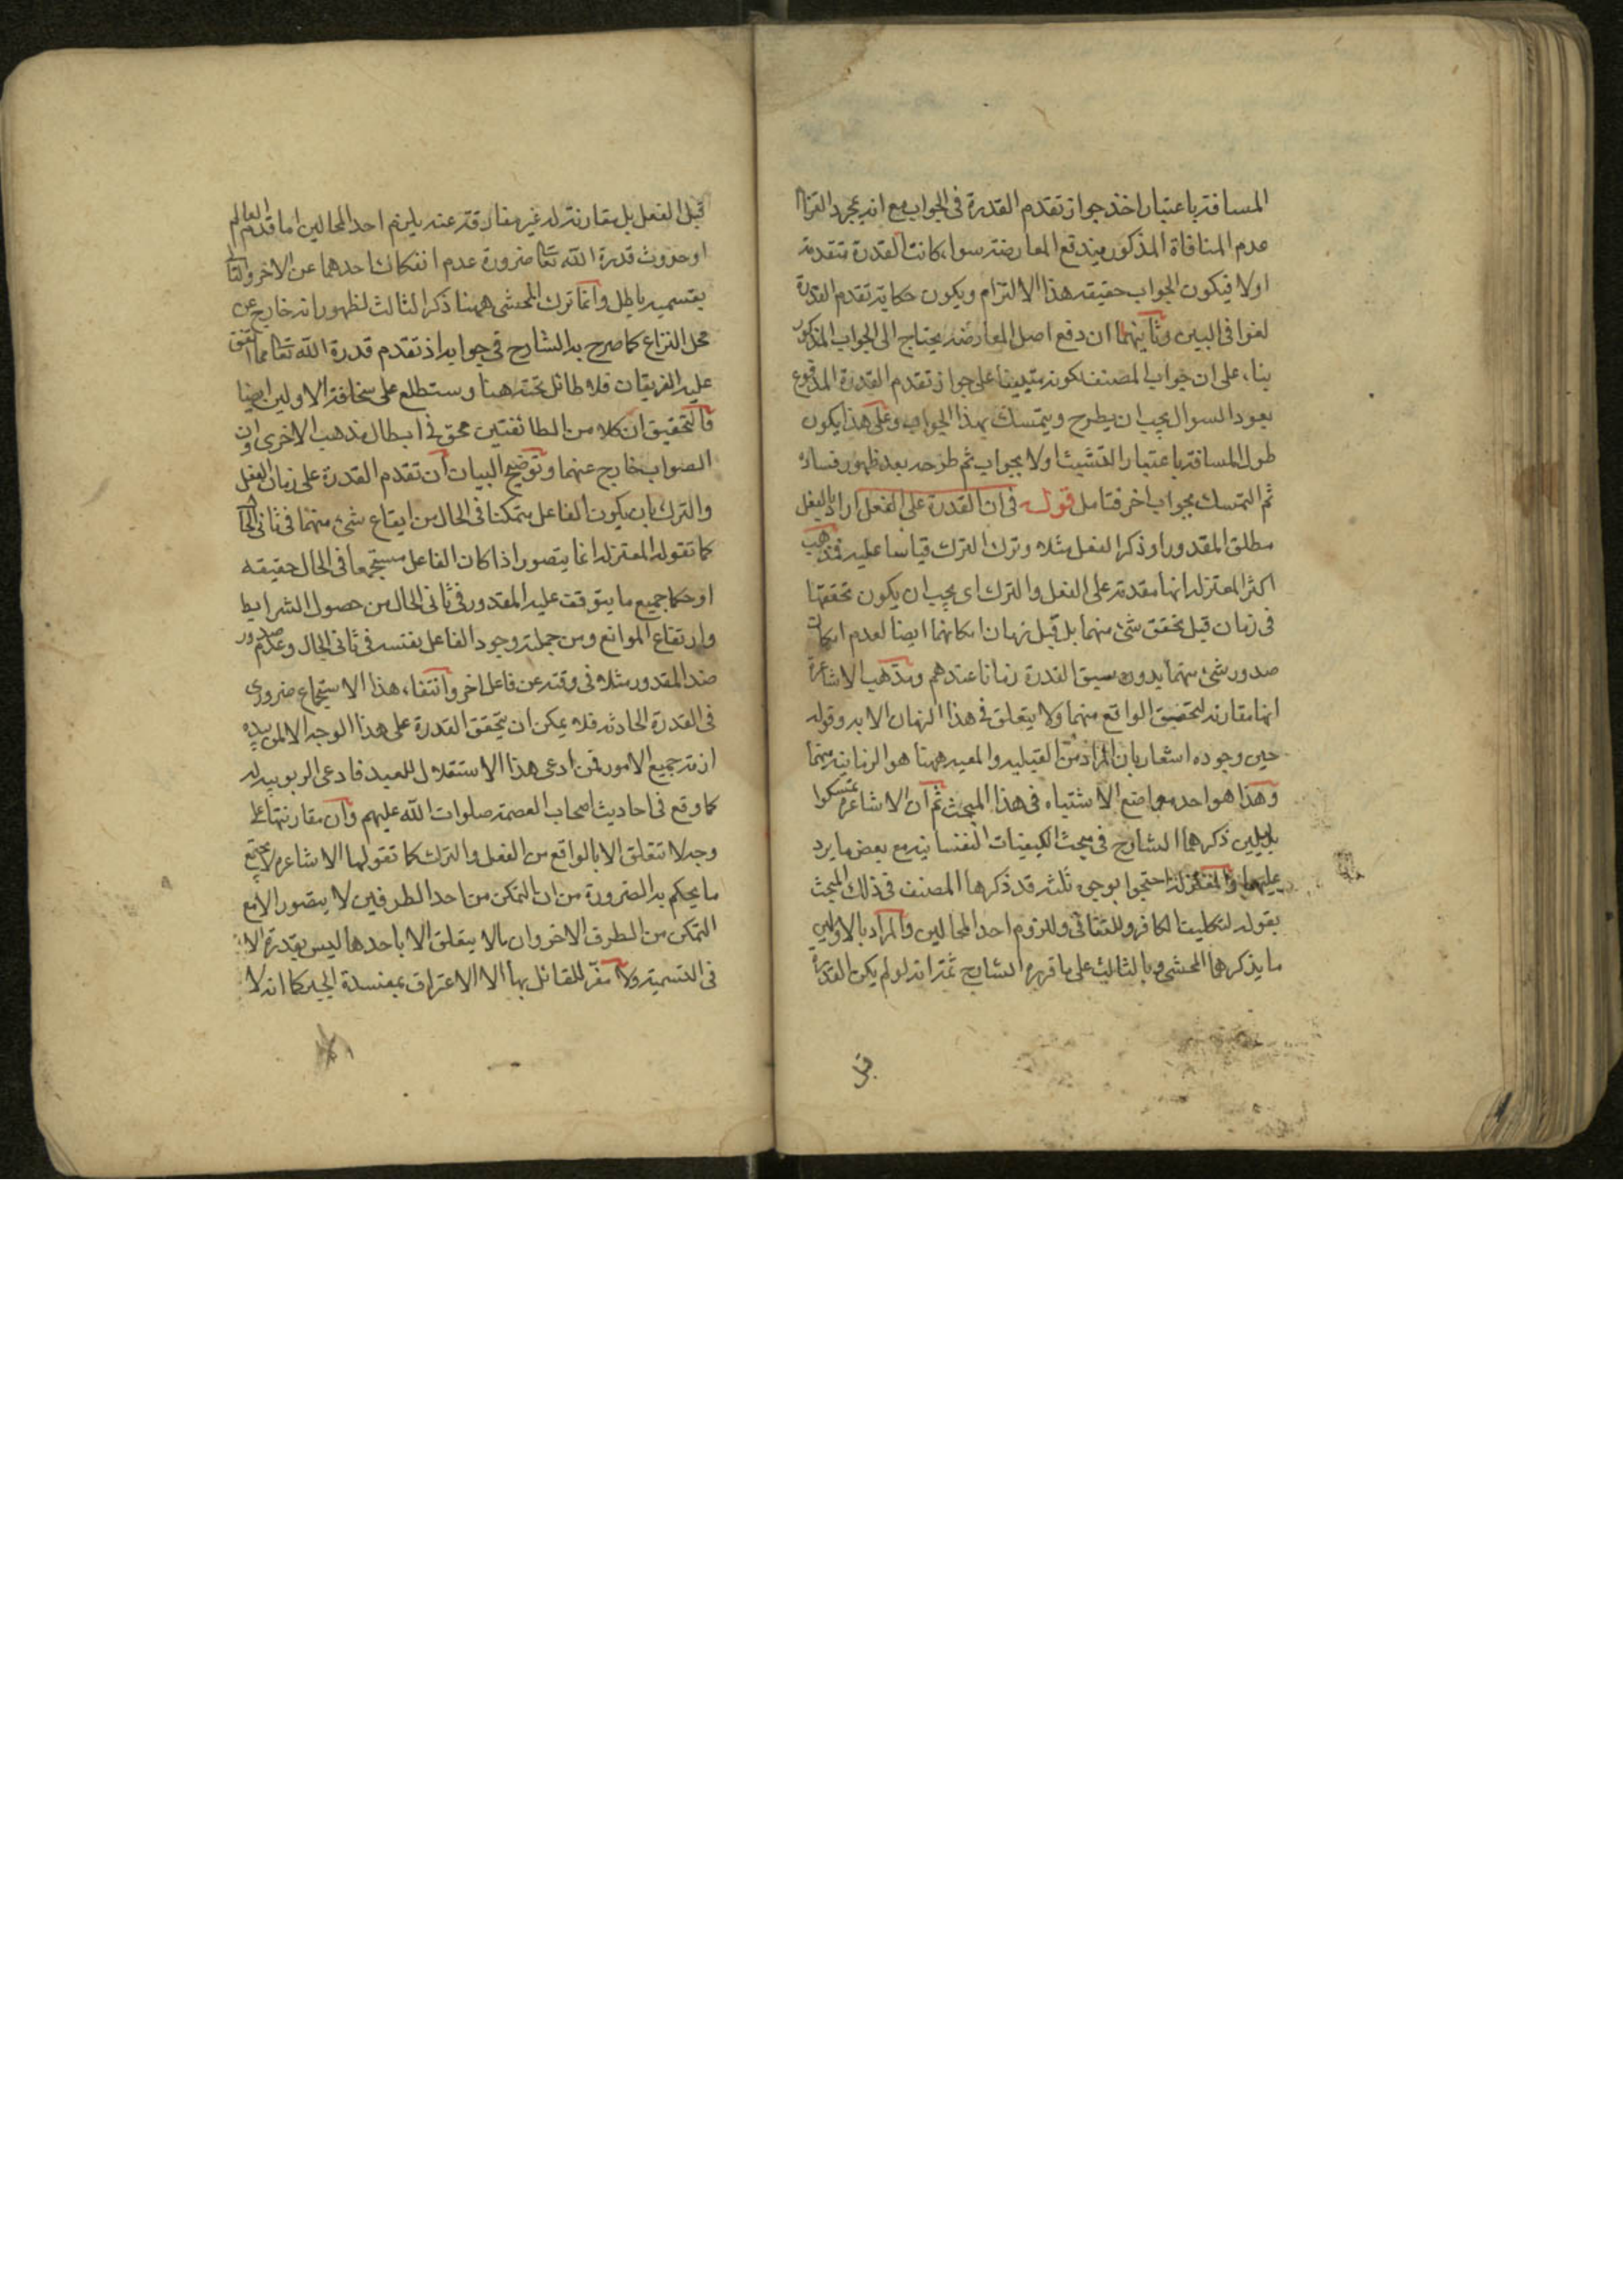 المسافة باعتبار اخذ جواز تقدم القدرة فى الجواب مع انه بمجرد التزام
عدم المنافاة المذكور يندفع المعارضة سواء كانت القدرة متقدمة
اولا فيكون الجواب حقيقه هذا الالتزام ويكون حكاية تقدم القدرة
لغوا فى البين وثانيهما ان دفع اصل المعارضة يحتاج الى الجواب المذكور
بناء على ان جواب المصنف لكونه مبنيا على جواز تقدم القدرة المدفوع
بعود السوال يجب ان يطرح ويتمسك بهذا الجواب وعلى هذا يكون
طول المسافة باعتبار التشبث اولا بجواب ثم طرحه بعد ظهور فساده
ثم التمسك بجواب اخر فتامل قوله فى ان القدرة على الفعل اراد بالفعل
مطلق المقدور او ذكر الفعل مثلا وترك الترك قياسا عليه فذهب
اكثر المعتزله انها مقدمة على الفعل والترك اى يجب ان يكون تحققها
فى زمان قبل تحقق شئ منهما بل قبل زمان امكانهما ايضا لعدم امكان
صدور شئ منهما بدون سبق القدرة زمانا عندهم ومذهب الاشاعرة
انها مقارنه لتحقق الواقع منهما ولا يتعلق فى هذا الزمان الا به وقوله
حين وجوده اشعار بان المراد من القبليه والمعيه ههنا هو الزمانية منهما
وهذا هو احد مواضع الاشتباه فى هذا المبحث ثم ان الاشاعرة تمسكوا
بدليلين ذكرهما الشارح فى مبحث الكيفيات النفسانيه مع بعض ما يرد
عليهما والمعتزله احتجوا بوجوه ثلثه قد ذكرها المصنف فى ذلك المبحث
بقوله لتكليف الكافر وللتنافى وللزوم احد المحالين والمراد بالاولين
ما يذكرهما المحشى وبالثالث على ما قرره الشارح ثمة انه لو لم يكن القدرة
قبل
قبل الفعل بل مقارنة له غير مفارقة عنه يلزم احد المحالين اما قدم العالم
او حدوث قدرة الله تعا ضرورة عدم انفكاك احدهما عن الاخر والتالى
بقسميه باطل وانما ترك المحشى ههنا ذكر الثالث لظهور انه خارج عن
محل النزاع كما صرح به الشارح فى جوابه اذ تقدم قدرة الله تعا مما اتفق
عليه الفريقان فلا طائل تحته هنا وستطلع على سخافة الاولين ايضا
فالتحقيق ان كلا من الطائفتين محق فى ابطال مذهب الاخرى وان
الصواب خارج عنهما وتوضيح البيان ان تقدم القدرة على زمان الفعل
والترك بان يكون الفاعل متمكنا فى الحال من ايقاع شئ منهما فى ثانى الحال
كما تقوله المعتزله انما يتصور اذا كان الفاعل مستجمعا فى الحال حقيقه
او حكما جميع ما يتوقف عليه المقدور فى ثانى الحال من حصول الشرايط
وارتفاع الموانع ومن جملته وجود الفاعل بنفسه فى ثانى الحال وعدم صدور
ضد المقدور مثلا فى وقته عن فاعل اخر وانتفاء هذا الاستجماع ضرورى
فى القدرة الحادثه فلا يمكن ان يتحقق القدرة على هذا الوجه الا لمن بيده
ازمة جميع الامور فمن ادعى هذا الاستقلال للعبد فادعى الربوبيه له
كما وقع فى احاديث اصحاب العصمة صلوات الله عليهم وان مقارنتها على
وجه لا تتعلق الا بالواقع من الفعل والترك كما تقولها الاشاعرة لا يجتمع
ما يحكم به الضرورة من ان التمكن من احد الطرفين لا يتصور الا مع
التمكن من الطرف الاخر وان ما لا يتعلق الا باحدهما ليس بقدرة الا
فى التسمية ولا مفر للقائل بها الا الاعتراف بمفسدة الجبر كما انه لا